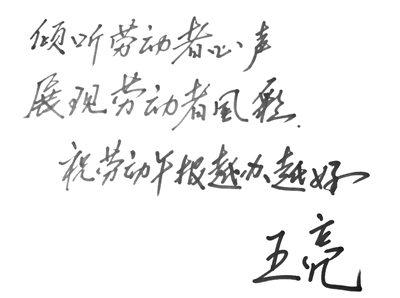 倾听劳动者心声
展现劳动者风彩.
祝劳动午报越办越好
王亮